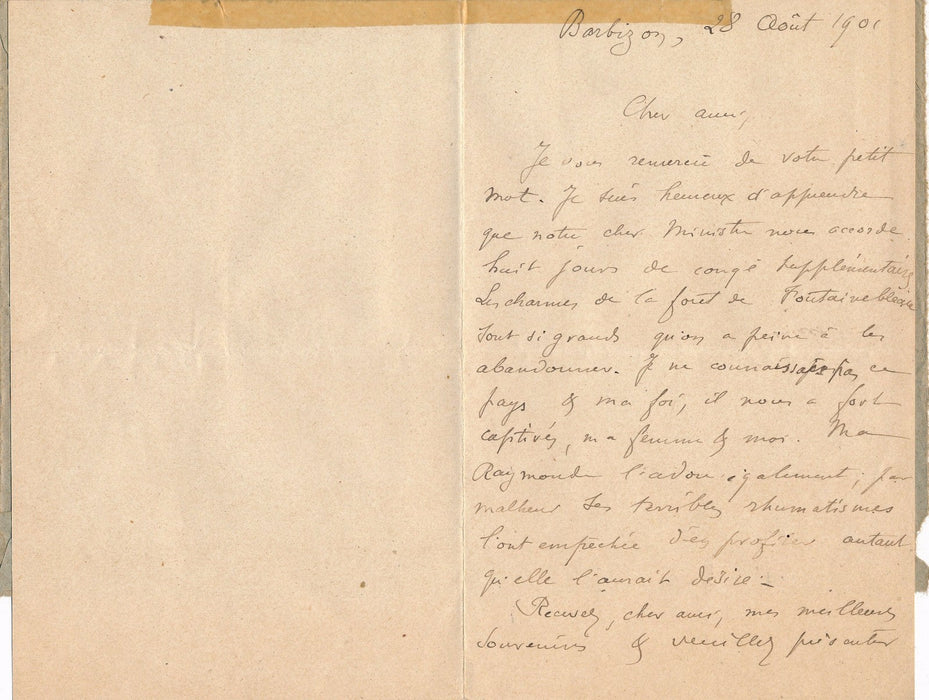 Barbizon, 28 Août 1901
Cher ami,
Je vous remercie de votre petit
mot. Je suis heureux d'apprendre
que notre cher Ministre nous accorde
huit jours de congé supplémentaire
Les charmes de la forêt de Fontainebleau
sont si grands qu'on a peine à les
abandonner. Je ne connaissais pas ce
pays & ma foi, il nous a fort
captivés, ma femme & moi. Ma
Raymonde l'adore également; par
malheur ses terribles rhumatismes
l'ont empêchée d'en profiter autant
qu'elle l'aurait désiré.—
Recevez, cher ami, mes meilleurs
souvenirs & veuillez présenter